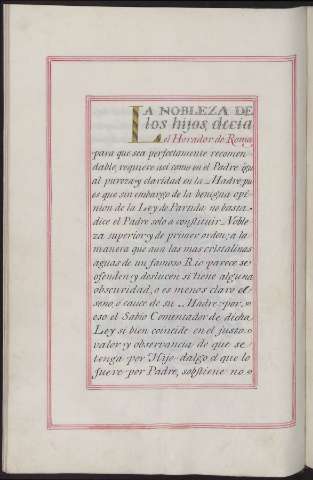 LA NOBLEZA DE
los hijos, decia
el Horador de Roma,
para que sea perfectamente recomen-
dable, requiere asi como en el Padre igu-
al pureza, y claridad en la Madre, pu-
es que sin embargo de la benigna opi-
nion de la Ley de Partida no basta,
dice el Padre solo a constituir Noble-
za superior, y de primer orden; a la
manera que aun las mas cristalinas
aguas de un famoso Rio parece se
ofenden, y deslucen si tiene alguna
obscuridad, o es menos claro el
seno, o cauce de su Madre: por
eso el Sabio Comentador de dicha
Ley si bien coincide en el justo
valor, y observancia de que se
tenga por Hijo-dalgo el que lo
fuere por Padre, sobstiene no